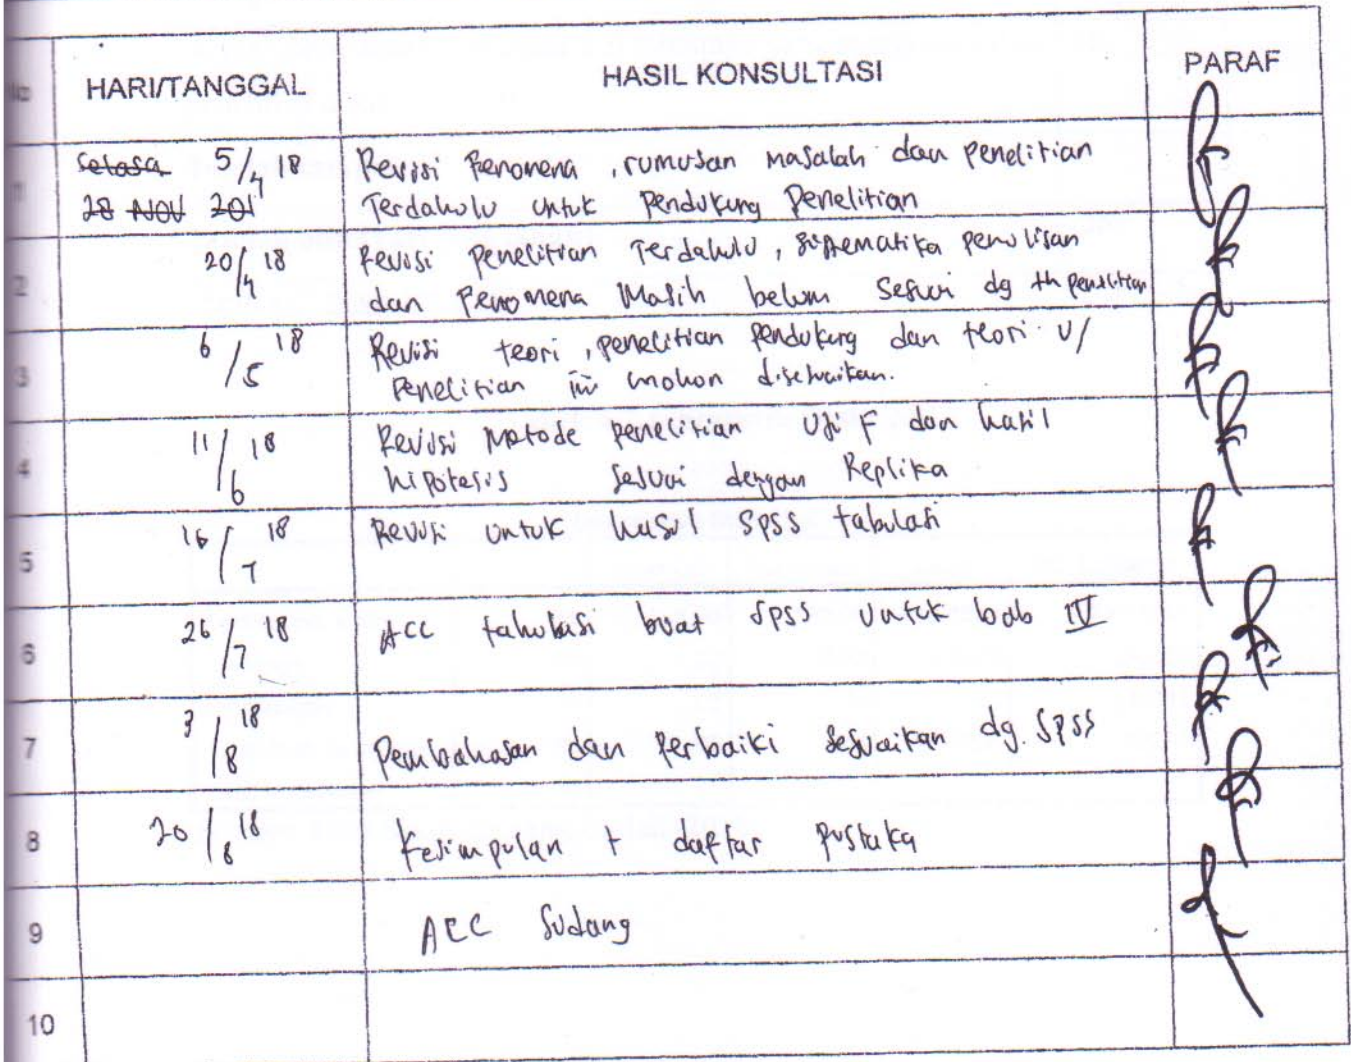 No HARI/TANGGAL HASIL KONSULTASI PARAF
1 Selasa 5/4 18 Revisi Fenomena , rumusan masalah dan penelitian
28 NOV 201 Terdahulu untuk Pendukung Penelitian
2 20/4 18 Revisi penelitian Terdahulu , sistematika penulisan
dan Fenomena Masih belum Sesuai dg th penelitian
3 6/5 18 Revisi teori , penelitian Pendukung dan teori u/
Penelitian ini mohon disesuaikan.
4 11/6 18 Revisi Metode penelitian Uji F dan hasil
hipotesis sesuai dengan Replika
5 16/7 18 Revisi untuk hasil SPSS tabulasi
6 26/7 18 ACC tabulasi buat SPSS untuk bab IV
7 3/8 18 Pembahasan dan Perbaiki sesuaikan dg. SPSS
8 20/8 18 Kesimpulan + daftar pustaka
9 ACC Sidang
10